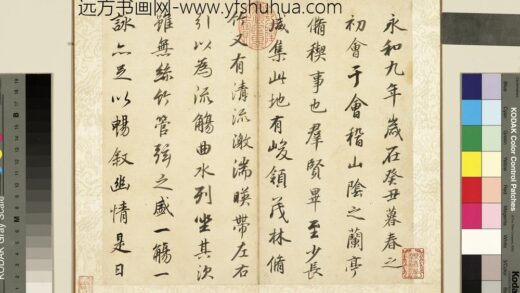 远方书画网-www.yfshuhua.com
永和九年歲在癸丑暮春之
初會于會稽山陰之蘭亭
脩禊事也羣賢畢至少長
咸集此地有峻領茂林脩
竹又有清流激湍暎帶左右
引以為流觴曲水列坐其次
雖無絲竹管弦之盛一觴一
詠亦足以暢叙幽情是日
KODAK Color Control Patches
KODAK Gray Scale